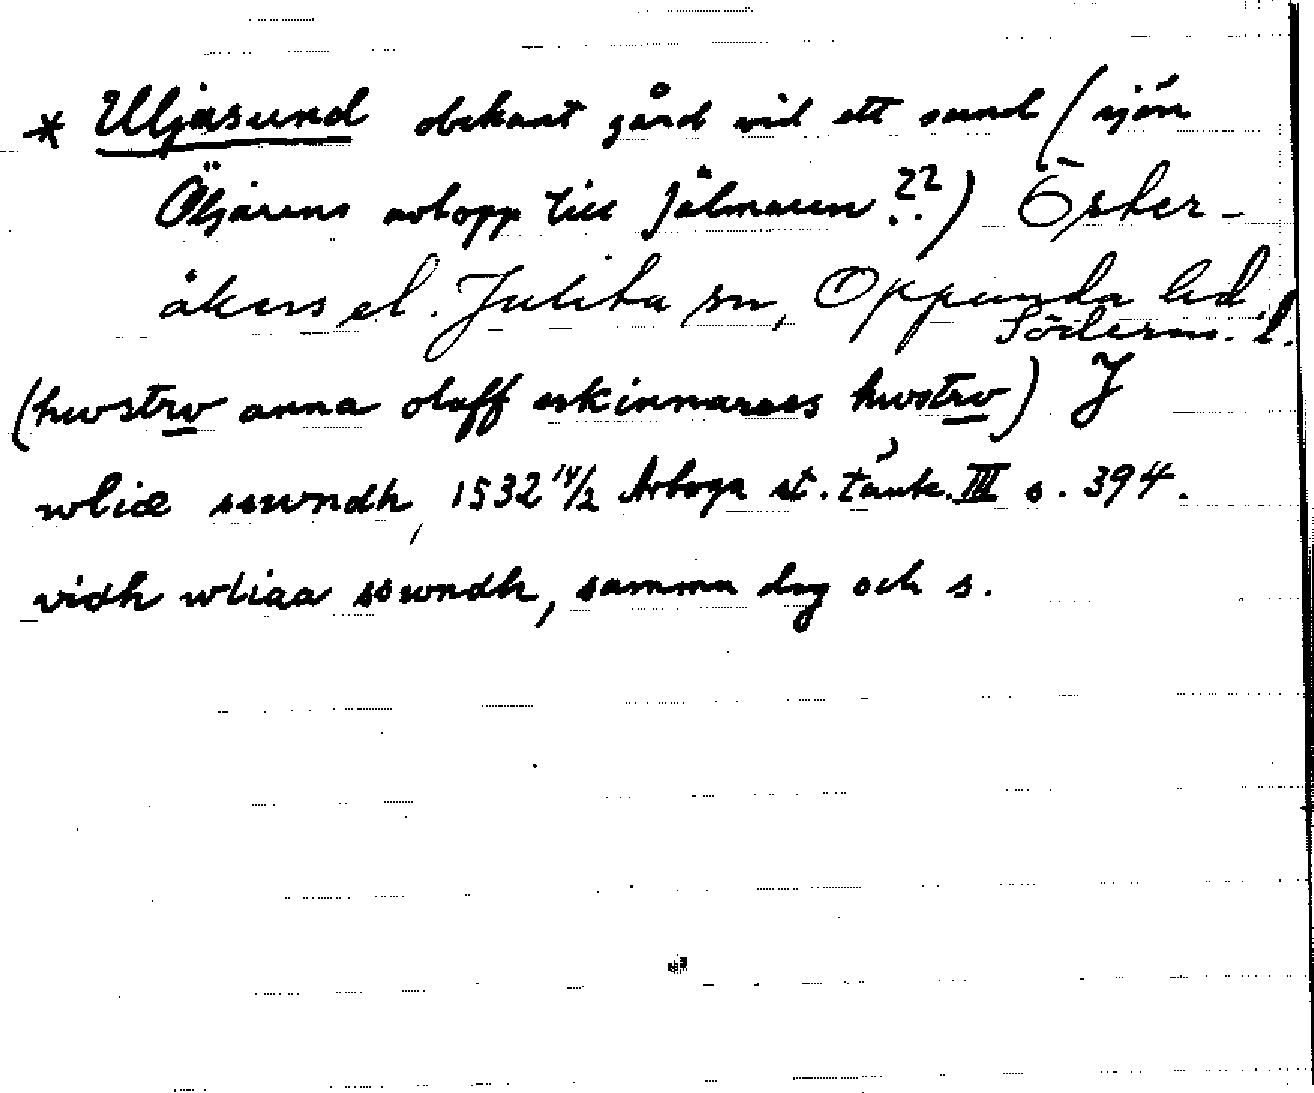 * Uljasund obekant gård vid ett sund (sjön
Öljarens avlopp till Jälmaren??) Öster-
åkers el. Julita sn, Oppunda hd,
Söderm. l.
(hwstrv anna oluff skinnares hwstrv) J
wliæ sswndh, 1532 14/2 Arboga st. tänk. III s. 394.
vidh wliaa sswndh, samma dag och s.